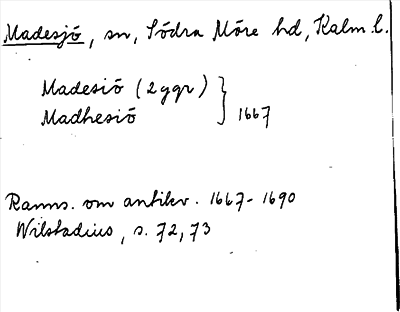 Madesjö, sn, Södra Möre hd, Kalm. l.
Madesiö (2 ggr)
Madhesiö } 1667
Ranns. om antikv. 1667-1690
Wilstadius, s. 72, 73